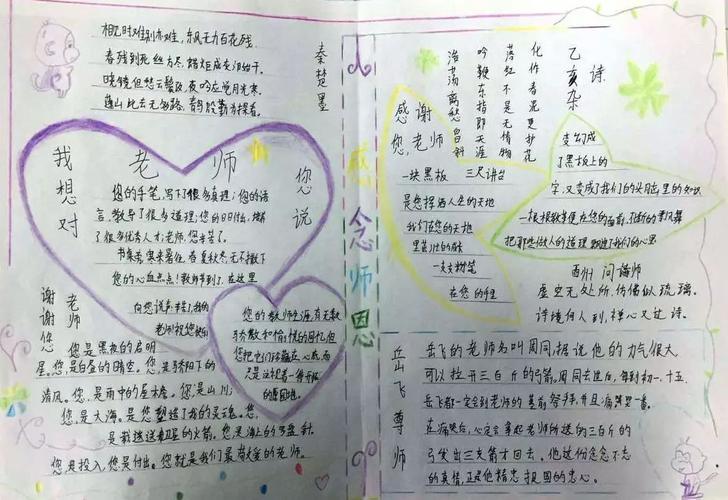 相见时难别亦难，东风无力百花残
春蚕到死丝方尽，蜡炬成灰泪始干。
晓镜但愁云鬓改，夜吟应觉月光寒。
蓬山此去无多路，青鸟殷勤为探看。
秦楚墨
我想对
老师
您说
您的手笔，写下了很多真理；您的语
言，教导了很多道理；
了很多优秀人才；老师，您辛苦了。
书桌前寒来暑往，春夏秋冬无不撒下
您的心血点点！教师节到了，在这里
向您说声
老师祝您
谢谢您
老师
您是黑夜的启明
星，您是白昼的晴空。您是骄阳下的
清风。您是雨中的屋檐。您是山川；
您是大海。是您塑造了我的灵魂。您
是载送卫星的火箭。您是海上的
您是投入，您是付出。您就是我们最敬爱的老师。
您的教师生涯，有无数
骄傲和愉悦的回忆，但
您把它们珍藏在心底，而
只是注视着一待开拓
的园地。
感念师恩
感谢
您，老师
一块黑板 三尺讲台
是您挥洒人生的天地
我们在您的天地
里
一支粉笔
在您的手里
变幻成
了黑板上的
字，又变成了我们的头脑里的知识
把那些做人的道理
乙亥杂诗
浩荡离愁白日斜
吟鞭东指即天涯
落红不是无情物
化作春泥更护花
酉州 问偏师
虚空无处所，仿佛似琉璃。
诗境何人到，禅心又过诗。
岳飞尊师
岳飞的老师名叫周同，据说他的力气很大
可以拉开三百斤的弓箭。周同去世后，每到初一、十五
岳飞都一定会到老师的墓前祭拜，并且痛哭一番。
在痛哭后，必定会拿起老师所送的三百斤的
弓发出三支箭才回去。他这份念念不忘
的真情，正是他精忠报国的忠心。